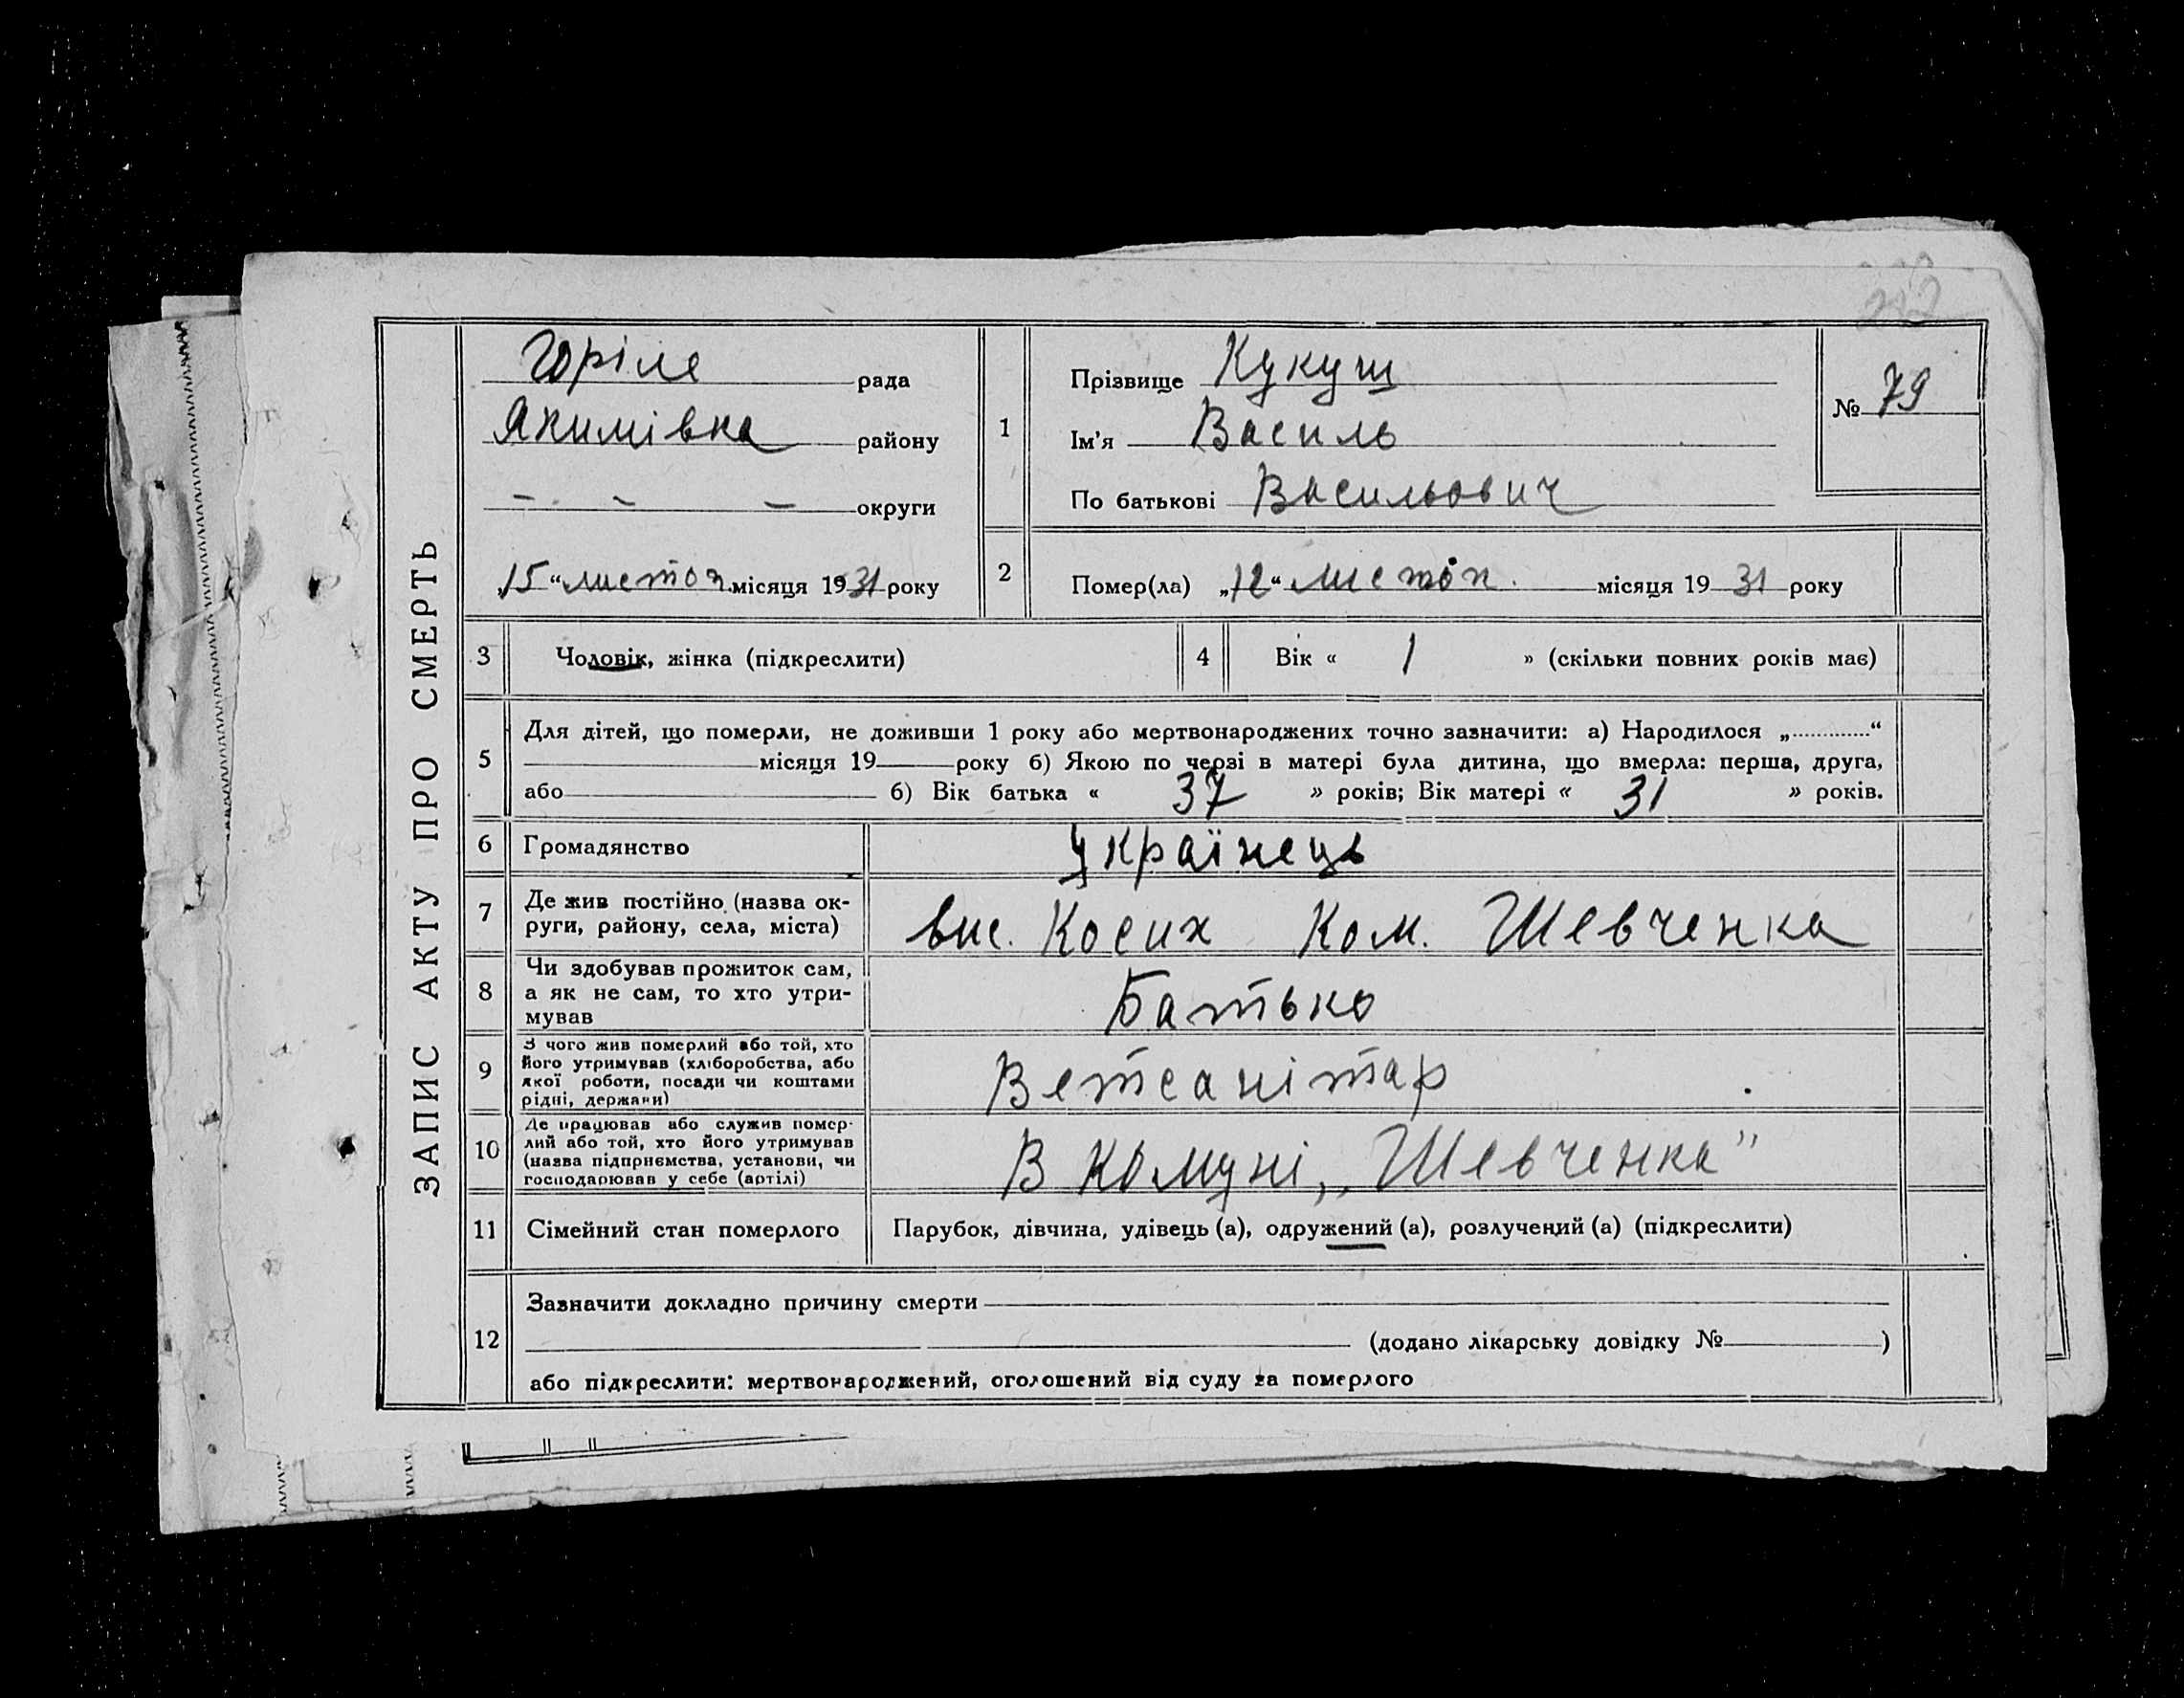 ЗАПИС АКТУ ПРО СМЕРТЬ
Горіле рада
Якимівка району
— — — округи
„15“ листоп. місяця 1931 року
1
Прізвище Кукуш
Ім'я Василь
По батькові Васильович
№ 79
2
Помер(ла) „12“ листоп. місяця 19 31 року
3 Чоловік, жінка (підкреслити)
4 Вік « 1 » (скільки повних років має)
5
Для дітей, що померли, не доживши 1 року або мертвонароджених точно зазначити: а) Народилося „............“
місяця 19 року б) Якою по черзі в матері була дитина, що вмерла: перша, друга,
або б) Вік батька « 37 » років; Вік матері « 31 » років.
6 Громадянство Українець
7 Де жив постійно (назва ок-
руги, району, села, міста)
вис. Косих Ком. Шевченка
8 Чи здобував прожиток сам,
а як не сам, то хто утри-
мував
Батько
9 З чого жив померлий або той, хто
його утримував (хліборобства, або
якої роботи, посади чи коштами
рідні, держави)
Ветсанітар
10 Де працював або служив помер-
лий або той, хто його утримував
(назва підприємства, установи, чи
господарював у себе (артілі)
В комуні „Шевченка"
11 Сімейний стан померлого Парубок, дівчина, удівець (а), одружений (а), розлучений (а) (підкреслити)
12
Зазначити докладно причину смерти
(додано лікарську довідку № )
або підкреслити: мертвонароджений, оголошений від суду за померлого